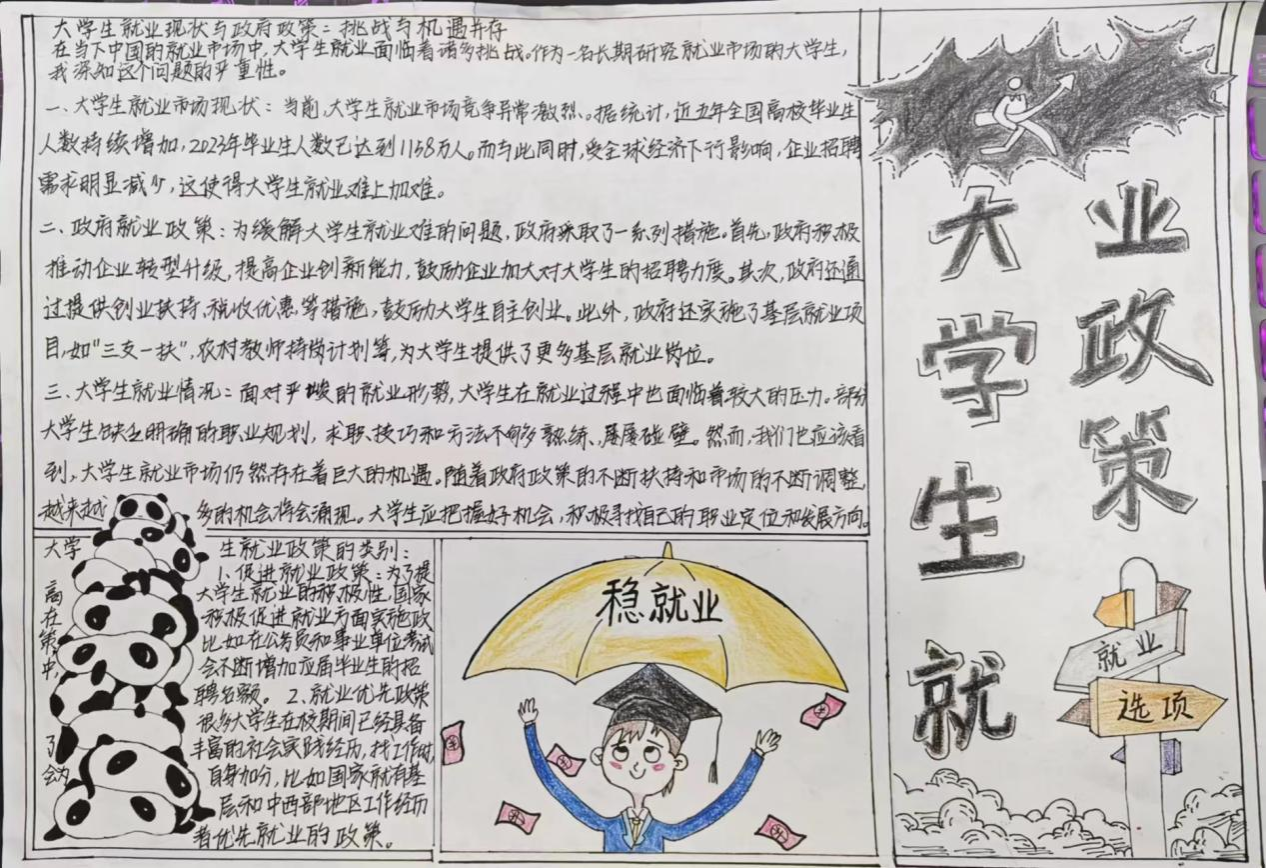 大学生就业现状与政府政策：挑战与机遇并存
在当下中国的就业市场中，大学生就业面临着诸多挑战。作为一名长期研究就业市场的大学生，
我深知这个问题的严重性。
一、大学生就业市场现状：当前，大学生就业市场竞争异常激烈。据统计，近五年全国高校毕业生
人数持续增加，2023年毕业生人数已达到1158万人。而与此同时，受全球经济下行影响，企业招聘
需求明显减少，这使得大学生就业难上加难。
二、政府就业政策：为缓解大学生就业难的问题，政府采取了一系列措施。首先，政府积极
推动企业转型升级，提高企业创新能力，鼓励企业加大对大学生的招聘力度。其次，政府还通
过提供创业扶持、税收优惠，等措施，鼓励大学生自主创业。此外，政府还实施了基层就业项
目，如“三支一扶”，农村教师特岗计划等，为大学生提供了更多基层就业岗位。
三、大学生就业情况：面对严峻的就业形势，大学生在就业过程中也面临着较大的压力。部分
大学生缺乏明确的职业规划，求职技巧和方法不够多熟练、屡屡碰壁。然而，我们也应该看
到，大学生就业市场仍然存在着巨大的机遇。随着政府政策的不断扶持和市场的不断调整，
越来越多的机会将会涌现。大学生应把握好机会，积极寻找自己的职业定位和发展方向。
大学生就业政策的类别：
1、促进就业政策：为了提
高大学生就业的积极性，国家
在积极促进就业方面实施政
策，比如在公务员和事业单位考试
中，会不断增加应届毕业生的招
聘名额。2、就业优先政策
很多大学生在校期间已经具备
了丰富的社会实践经历，找工作时
会为自身加分，比如国家就有基
层和中西部地区工作经历
者优先就业的政策。
稳就业
大学生就
业政策
就业
选项